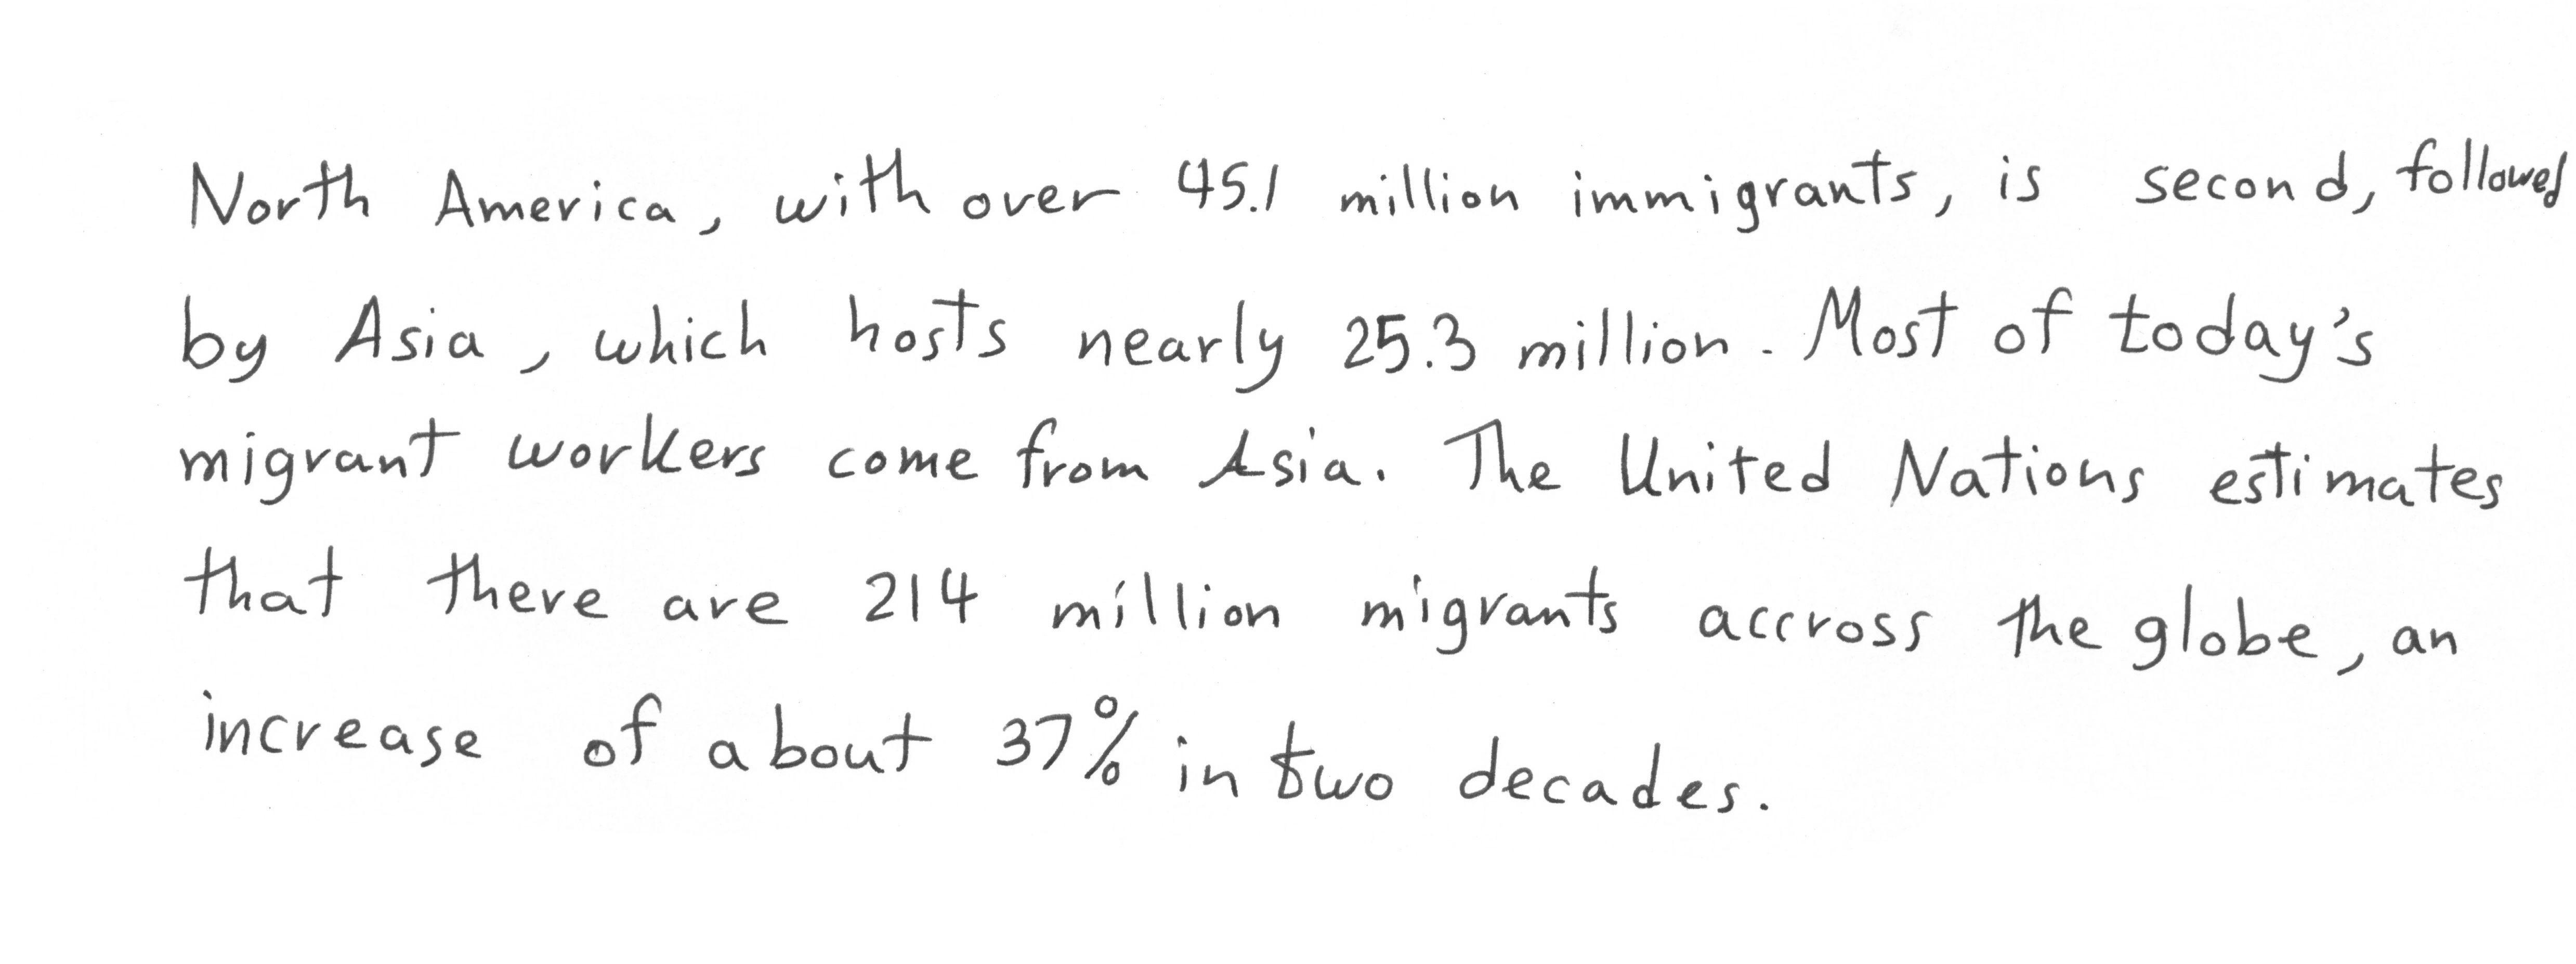 North America, with over 45.1 million immigrants, is second, followed
by Asia, which hosts nearly 25.3 million. Most of today's
migrant workers come from Asia. The United Nations estimates
that there are 214 million migrants accross the globe, an
increase of about 37% in two decades.